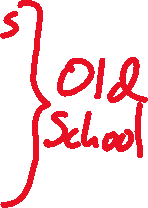 s
Old
School